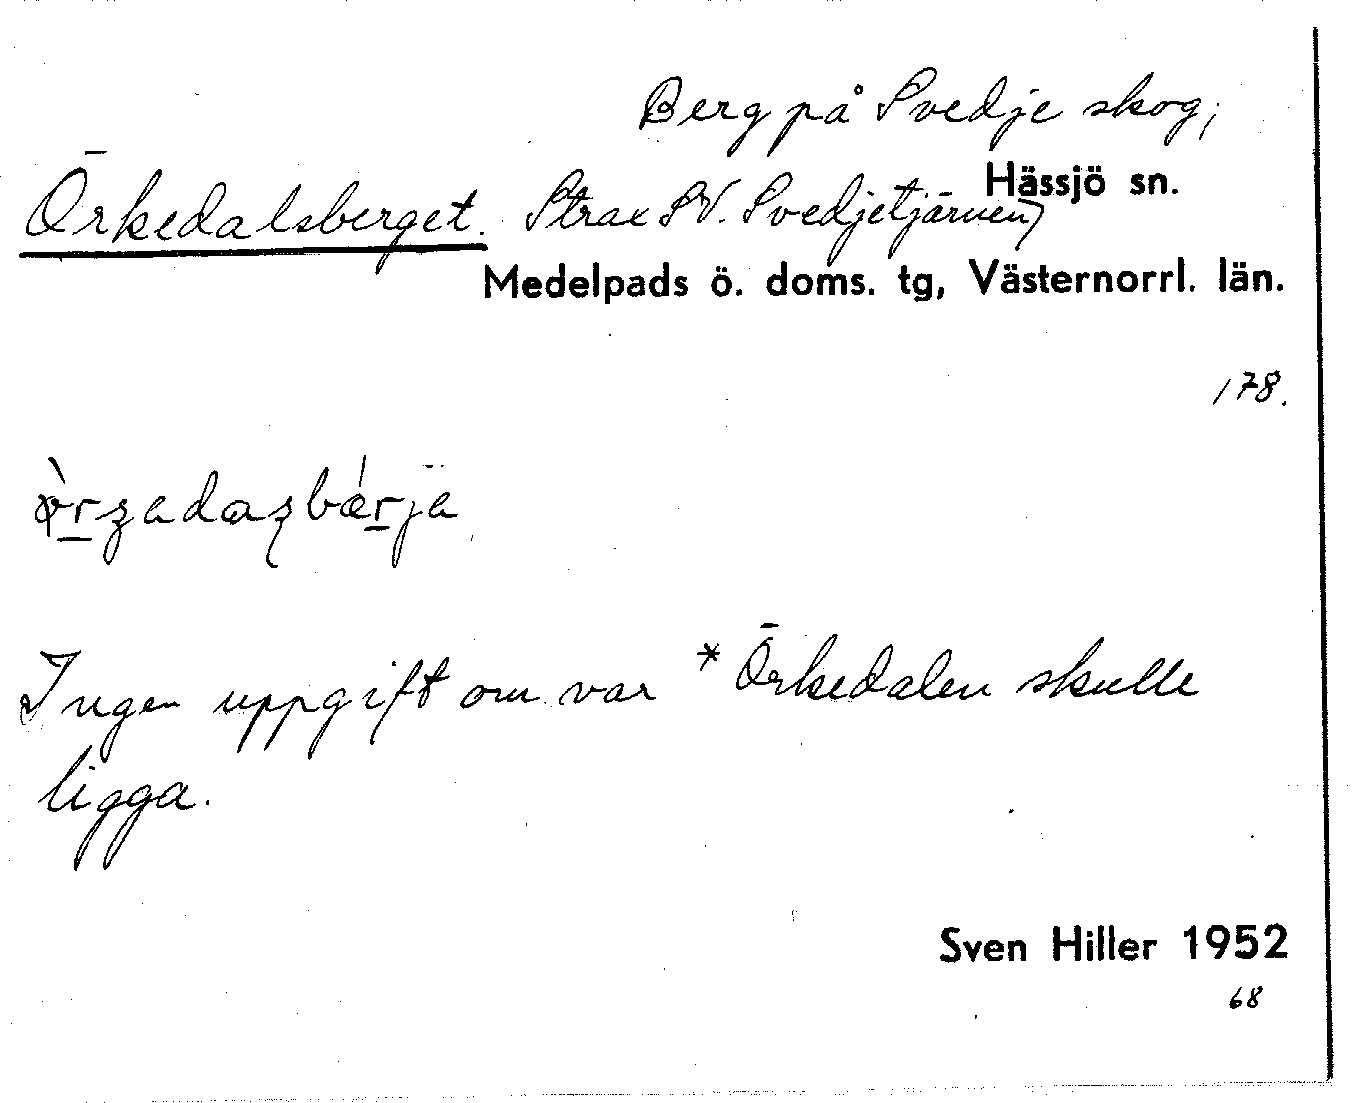 Berg på Svedje skog,
Örkedalsberget. Strax SV. Svedjetjärnen)
Hässjö sn.
Medelpads ö. doms. tg, Västernorrl. län.
178.
Ingen uppgift om var *Örkedalen skulle
ligga.
Sven Hiller 1952
68